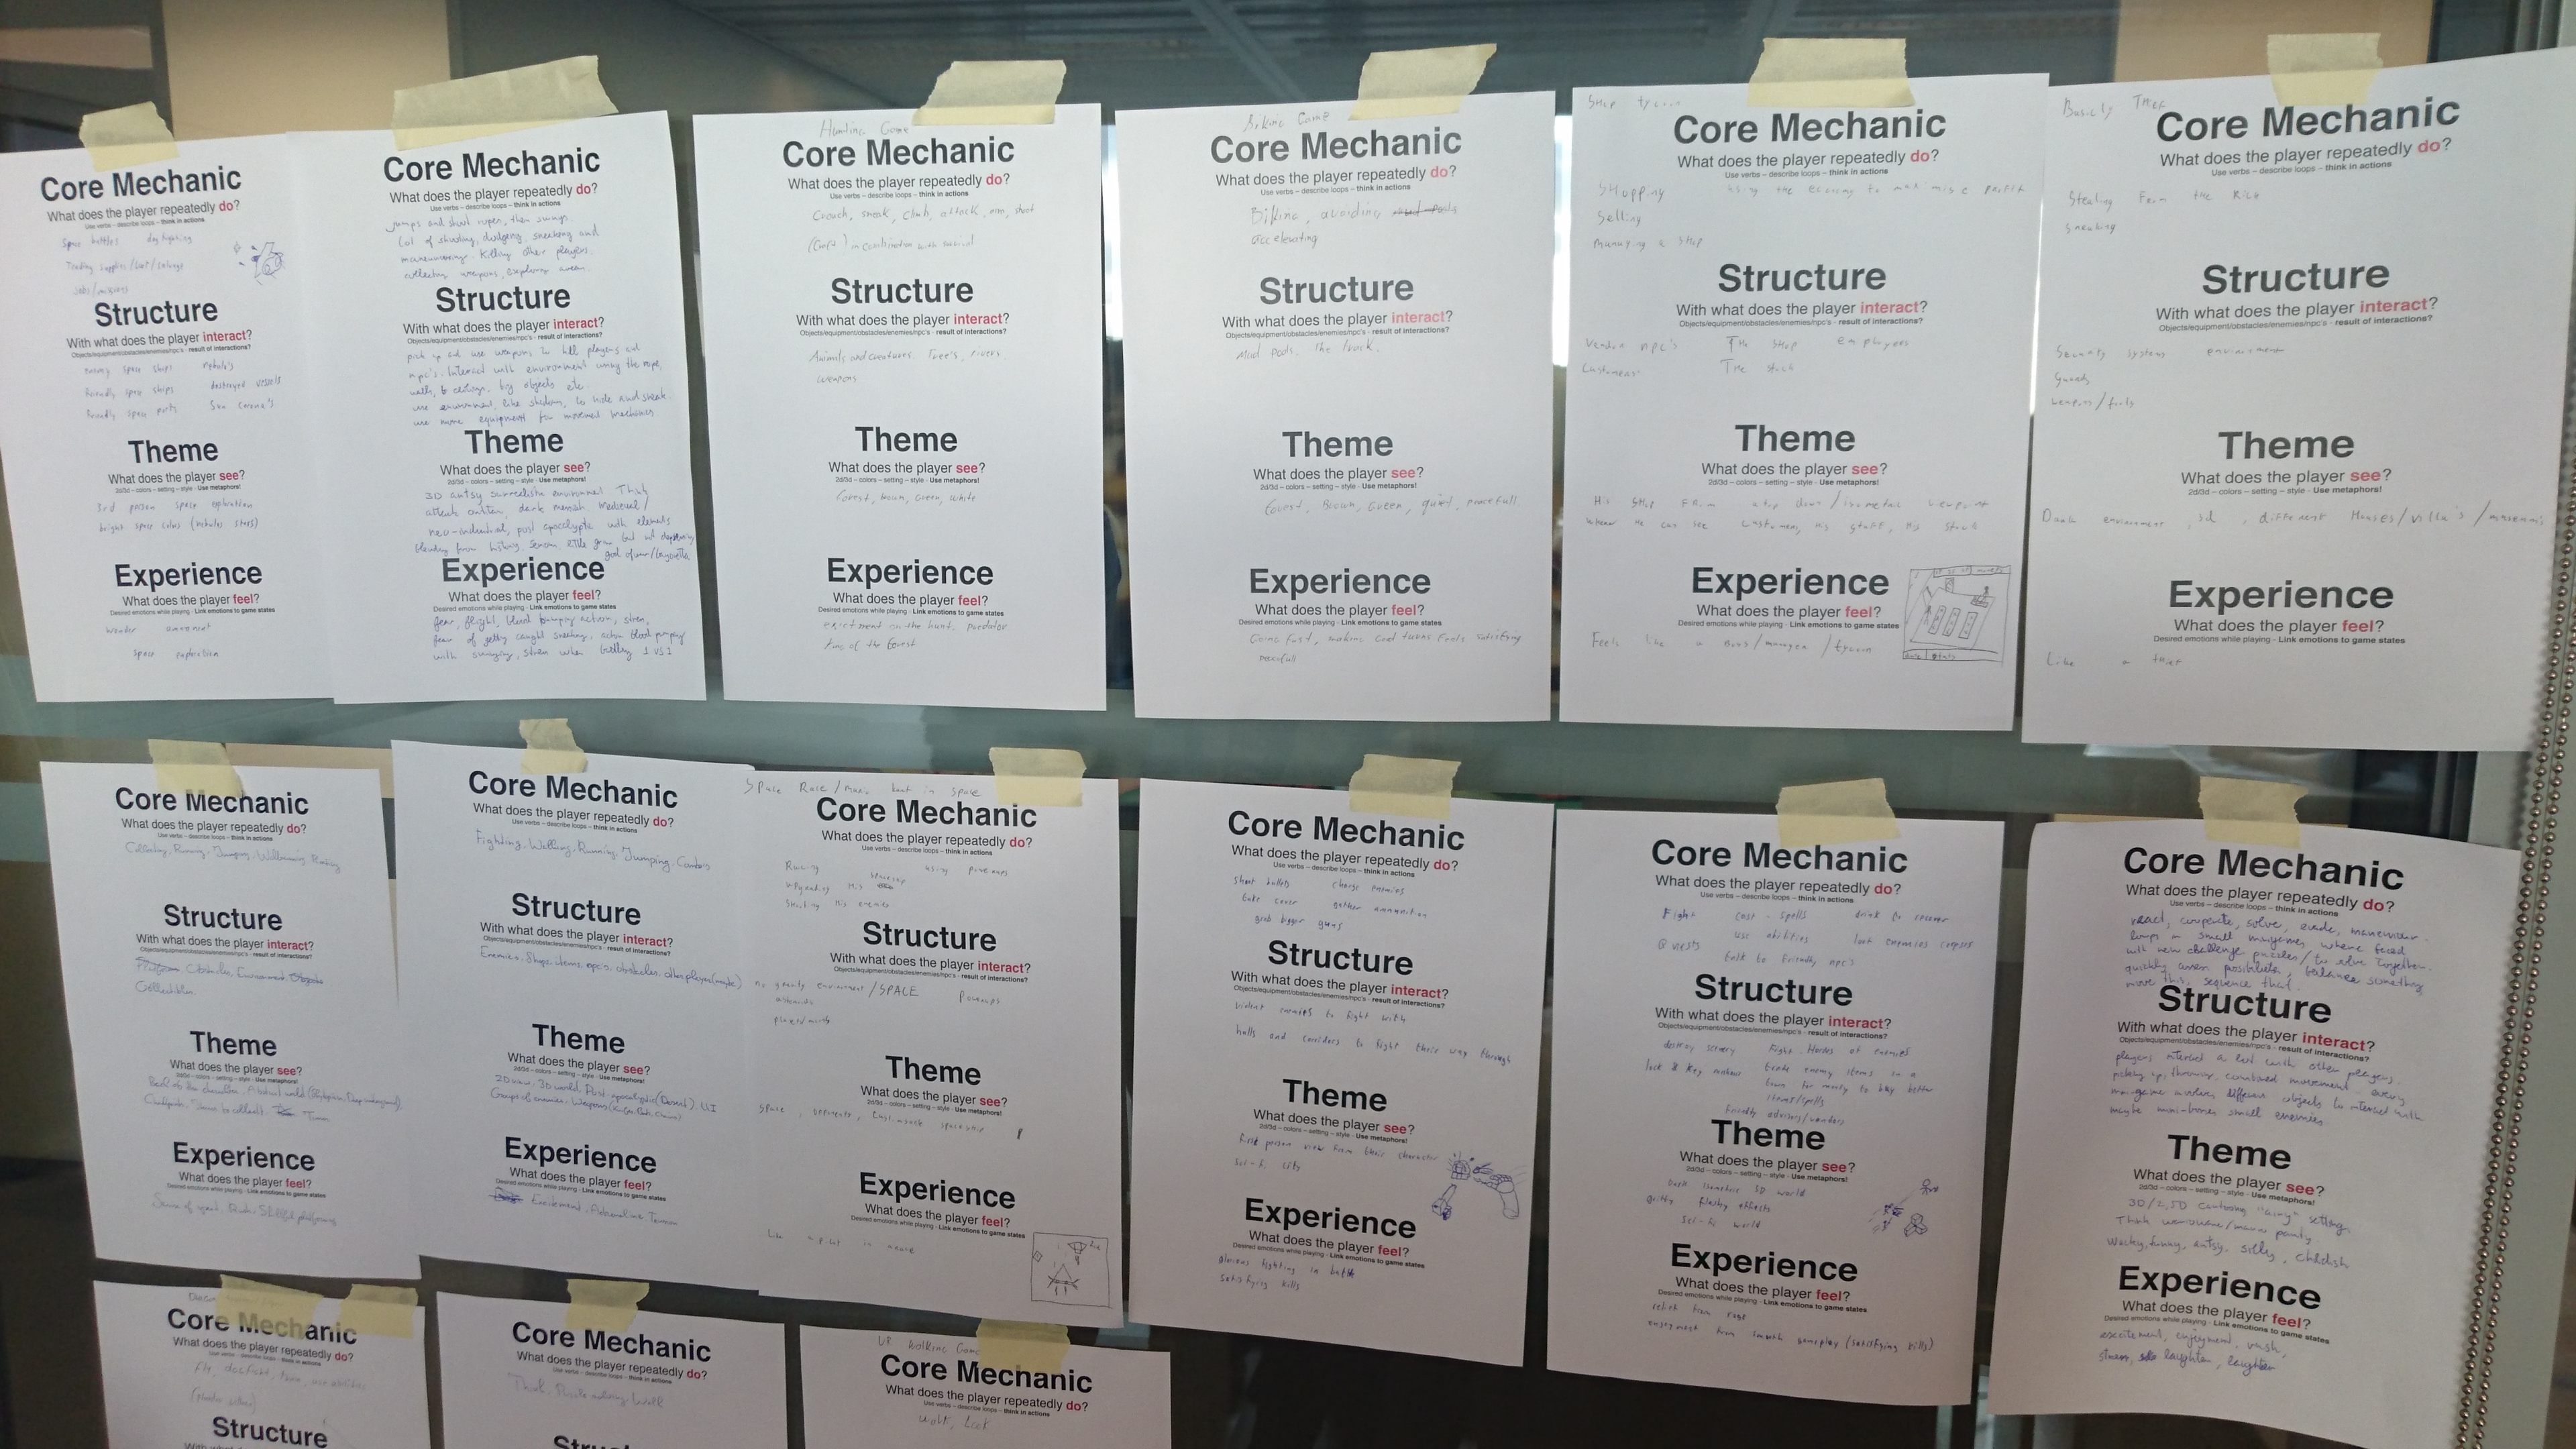 Core Mechanic
What does the player repeatedly do?
Use verbs – describe loops – think in actions
Space battles dogfighting
Trading supplies/loot/
Jobs/
Structure
With what does the player interact?
Objects/equipment/obstacles/enemies/npc's - result of interactions?
enemy space ships nebula's
friendly space ships destroyed vessels
friendly space ports Sun corona's
Theme
What does the player see?
2d/3d – colors – setting – style - Use metaphors!
3rd person space exploration
bright space colors (nebulas stars)
Experience
What does the player feel?
Desired emotions while playing - Link emotions to game states
wonder
space exploration
Core Mechanic
What does the player repeatedly do?
Use verbs – describe loops – think in actions
jumps and shoot ropes, then swings.
Lot of shooting, dodging, sneaking and
maneuvering. Killing other players.
collecting weapons, exploring areas.
Structure
With what does the player interact?
Objects/equipment/obstacles/enemies/npc's - result of interactions?
pick up and use weapons to kill players and
npc's. Interact with environment using the rope,
walls, ceilings, big objects etc.
use environment, like shadows, to hide and sneak.
use more equipment for movement
Theme
What does the player see?
2d/3d – colors – setting – style - Use metaphors!
3D artsy surrealistic environment. Think
dark medieval/
neo-industrial, post apocalyptic with elements
from history, little but not depressing
god of war/bayonetta
Experience
What does the player feel?
Desired emotions while playing - Link emotions to game states
fear, flight, blood pumping action, stress,
fear of getting caught sneaking, action blood pumping
with swinging, stress when battling 1 vs 1
Hunting Game
Core Mechanic
What does the player repeatedly do?
Use verbs – describe loops – think in actions
Crouch, sneak, climb, attack, aim, shoot
(Craft) in combination with survival
Structure
With what does the player interact?
Objects/equipment/obstacles/enemies/npc's - result of interactions?
Animals and creatures. Tree's, rivers
weapons
Theme
What does the player see?
2d/3d – colors – setting – style - Use metaphors!
Forest, Brown, Green, white
Experience
What does the player feel?
Desired emotions while playing - Link emotions to game states
excitement on the hunt, predator
king of the forest
Biking Game
Core Mechanic
What does the player repeatedly do?
Use verbs – describe loops – think in actions
Biking, avoiding
accelerating
Structure
With what does the player interact?
Objects/equipment/obstacles/enemies/npc's - result of interactions?
Mud pools. The track.
Theme
What does the player see?
2d/3d – colors – setting – style - Use metaphors!
Forest, Brown, Green, quiet, peacefull
Experience
What does the player feel?
Desired emotions while playing - Link emotions to game states
Going fast, making good turns feels satisfying
peacefull
Shop tycoon
Core Mechanic
What does the player repeatedly do?
Use verbs – describe loops – think in actions
Shopping using the economy to maximise profit
Selling
managing a shop
Structure
With what does the player interact?
Objects/equipment/obstacles/enemies/npc's - result of interactions?
Vendor npc's The shop employees
Customers The stock
Theme
What does the player see?
2d/3d – colors – setting – style - Use metaphors!
His shop from a top down/isometric viewpoint
where he can see customers, his staff, his stock
Experience
What does the player feel?
Desired emotions while playing - Link emotions to game states
Feels like a boss/manager/tycoon
Basicly Thief
Core Mechanic
What does the player repeatedly do?
Use verbs – describe loops – think in actions
Stealing From the Rich
Sneaking
Structure
With what does the player interact?
Objects/equipment/obstacles/enemies/npc's - result of interactions?
Security systems environment
Guards
weapons/tools
Theme
What does the player see?
2d/3d – colors – setting – style - Use metaphors!
Dark environment, 3d, different Houses/villa's/museums
Experience
What does the player feel?
Desired emotions while playing - Link emotions to game states
Like a thief
Core Mechanic
What does the player repeatedly do?
Use verbs – describe loops – think in actions
Collecting, Running, Jumping, Wallrunning
Structure
With what does the player interact?
Objects/equipment/obstacles/enemies/npc's - result of interactions?
Obstacles, Environment,
Collectibles.
Theme
What does the player see?
2d/3d – colors – setting – style - Use metaphors!
Back of the character, Abstract world
Checkpoints, Items to collect,
Experience
What does the player feel?
Desired emotions while playing - Link emotions to game states
Sense of speed, Skillful
Core Mechanic
What does the player repeatedly do?
Use verbs – describe loops – think in actions
Fighting, Walking, Running, Jumping, Combos
Structure
With what does the player interact?
Objects/equipment/obstacles/enemies/npc's - result of interactions?
Enemies, Shops, items, npcs, obstacles, other player (maybe)
Theme
What does the player see?
2d/3d – colors – setting – style - Use metaphors!
2D view, 3D world, Post-apocalyptic (Desert), UI
Groups of enemies, Weapons
Experience
What does the player feel?
Desired emotions while playing - Link emotions to game states
Excitement, Adrenaline, Tension
Space Race / but in space
Core Mechanic
What does the player repeatedly do?
Use verbs – describe loops – think in actions
Racing using powerups
upgrading His spaceship
Shooting His enemies
Structure
With what does the player interact?
Objects/equipment/obstacles/enemies/npc's - result of interactions?
no gravity enviroment/SPACE Powerups
asteroids
Theme
What does the player see?
2d/3d – colors – setting – style - Use metaphors!
Space, opponents, spaceship
Experience
What does the player feel?
Desired emotions while playing - Link emotions to game states
Like a pilot in
Core Mechanic
What does the player repeatedly do?
Use verbs – describe loops – think in actions
shoot bullets charge enemies
take cover gather ammunition
grab bigger guns
Structure
With what does the player interact?
Objects/equipment/obstacles/enemies/npc's - result of interactions?
violent enemies to fight with
halls and corridors to fight their way through
Theme
What does the player see?
2d/3d – colors – setting – style - Use metaphors!
first person view from their character
sci-fi city
Experience
What does the player feel?
Desired emotions while playing - Link emotions to game states
glorious fighting in battle
satisfying kills
Core Mechanic
What does the player repeatedly do?
Use verbs – describe loops – think in actions
Fight cast-spells drink to recover
use abilities loot enemies corpses
Quests
talk to friendly npc's
Structure
With what does the player interact?
Objects/equipment/obstacles/enemies/npc's - result of interactions?
destroy scenery Fight Hordes of enemies
lock & key trade enemy items in a
town for money to buy better
items/spells
friendly advisors/vendors
Theme
What does the player see?
2d/3d – colors – setting – style - Use metaphors!
Dark isometric 3D world
gritty flashy effects
Sci-fi world
Experience
What does the player feel?
Desired emotions while playing - Link emotions to game states
relief from rage
enjoyment from smooth gameplay (satisfying kills)
Core Mechanic
What does the player repeatedly do?
Use verbs – describe loops – think in actions
react, cooperate, solve, evade, maneuver.
loops in small minigames, where faced
with new challenges puzzles/to solve together.
quickly assess possibilities, balance something
move this, sequence that.
Structure
With what does the player interact?
Objects/equipment/obstacles/enemies/npc's - result of interactions?
players interact a lot with other players.
picking up, throwing, combined movement. every
mini-game involves different objects to interact with
maybe mini-bosses small enemies
Theme
What does the player see?
2d/3d – colors – setting – style - Use metaphors!
3D/2,5D cartoony setting.
Think warioware/mario party
Wacky, funny, artsy, silly, childish
Experience
What does the player feel?
Desired emotions while playing - Link emotions to game states
excitement, enjoyment, rush,
stress, laughter, laughter
Core Mechanic
What does the player repeatedly do?
Use verbs – describe loops – think in actions
Fly, dogfight, use abilities
Structure
With what
Core Mechanic
What does the player repeatedly do?
Use verbs – describe loops – think in actions
Think, Puzzle solving, Walk
VR Walking Game
Core Mechanic
What does the player repeatedly do?
Use verbs – describe loops – think in actions
Walk, Look